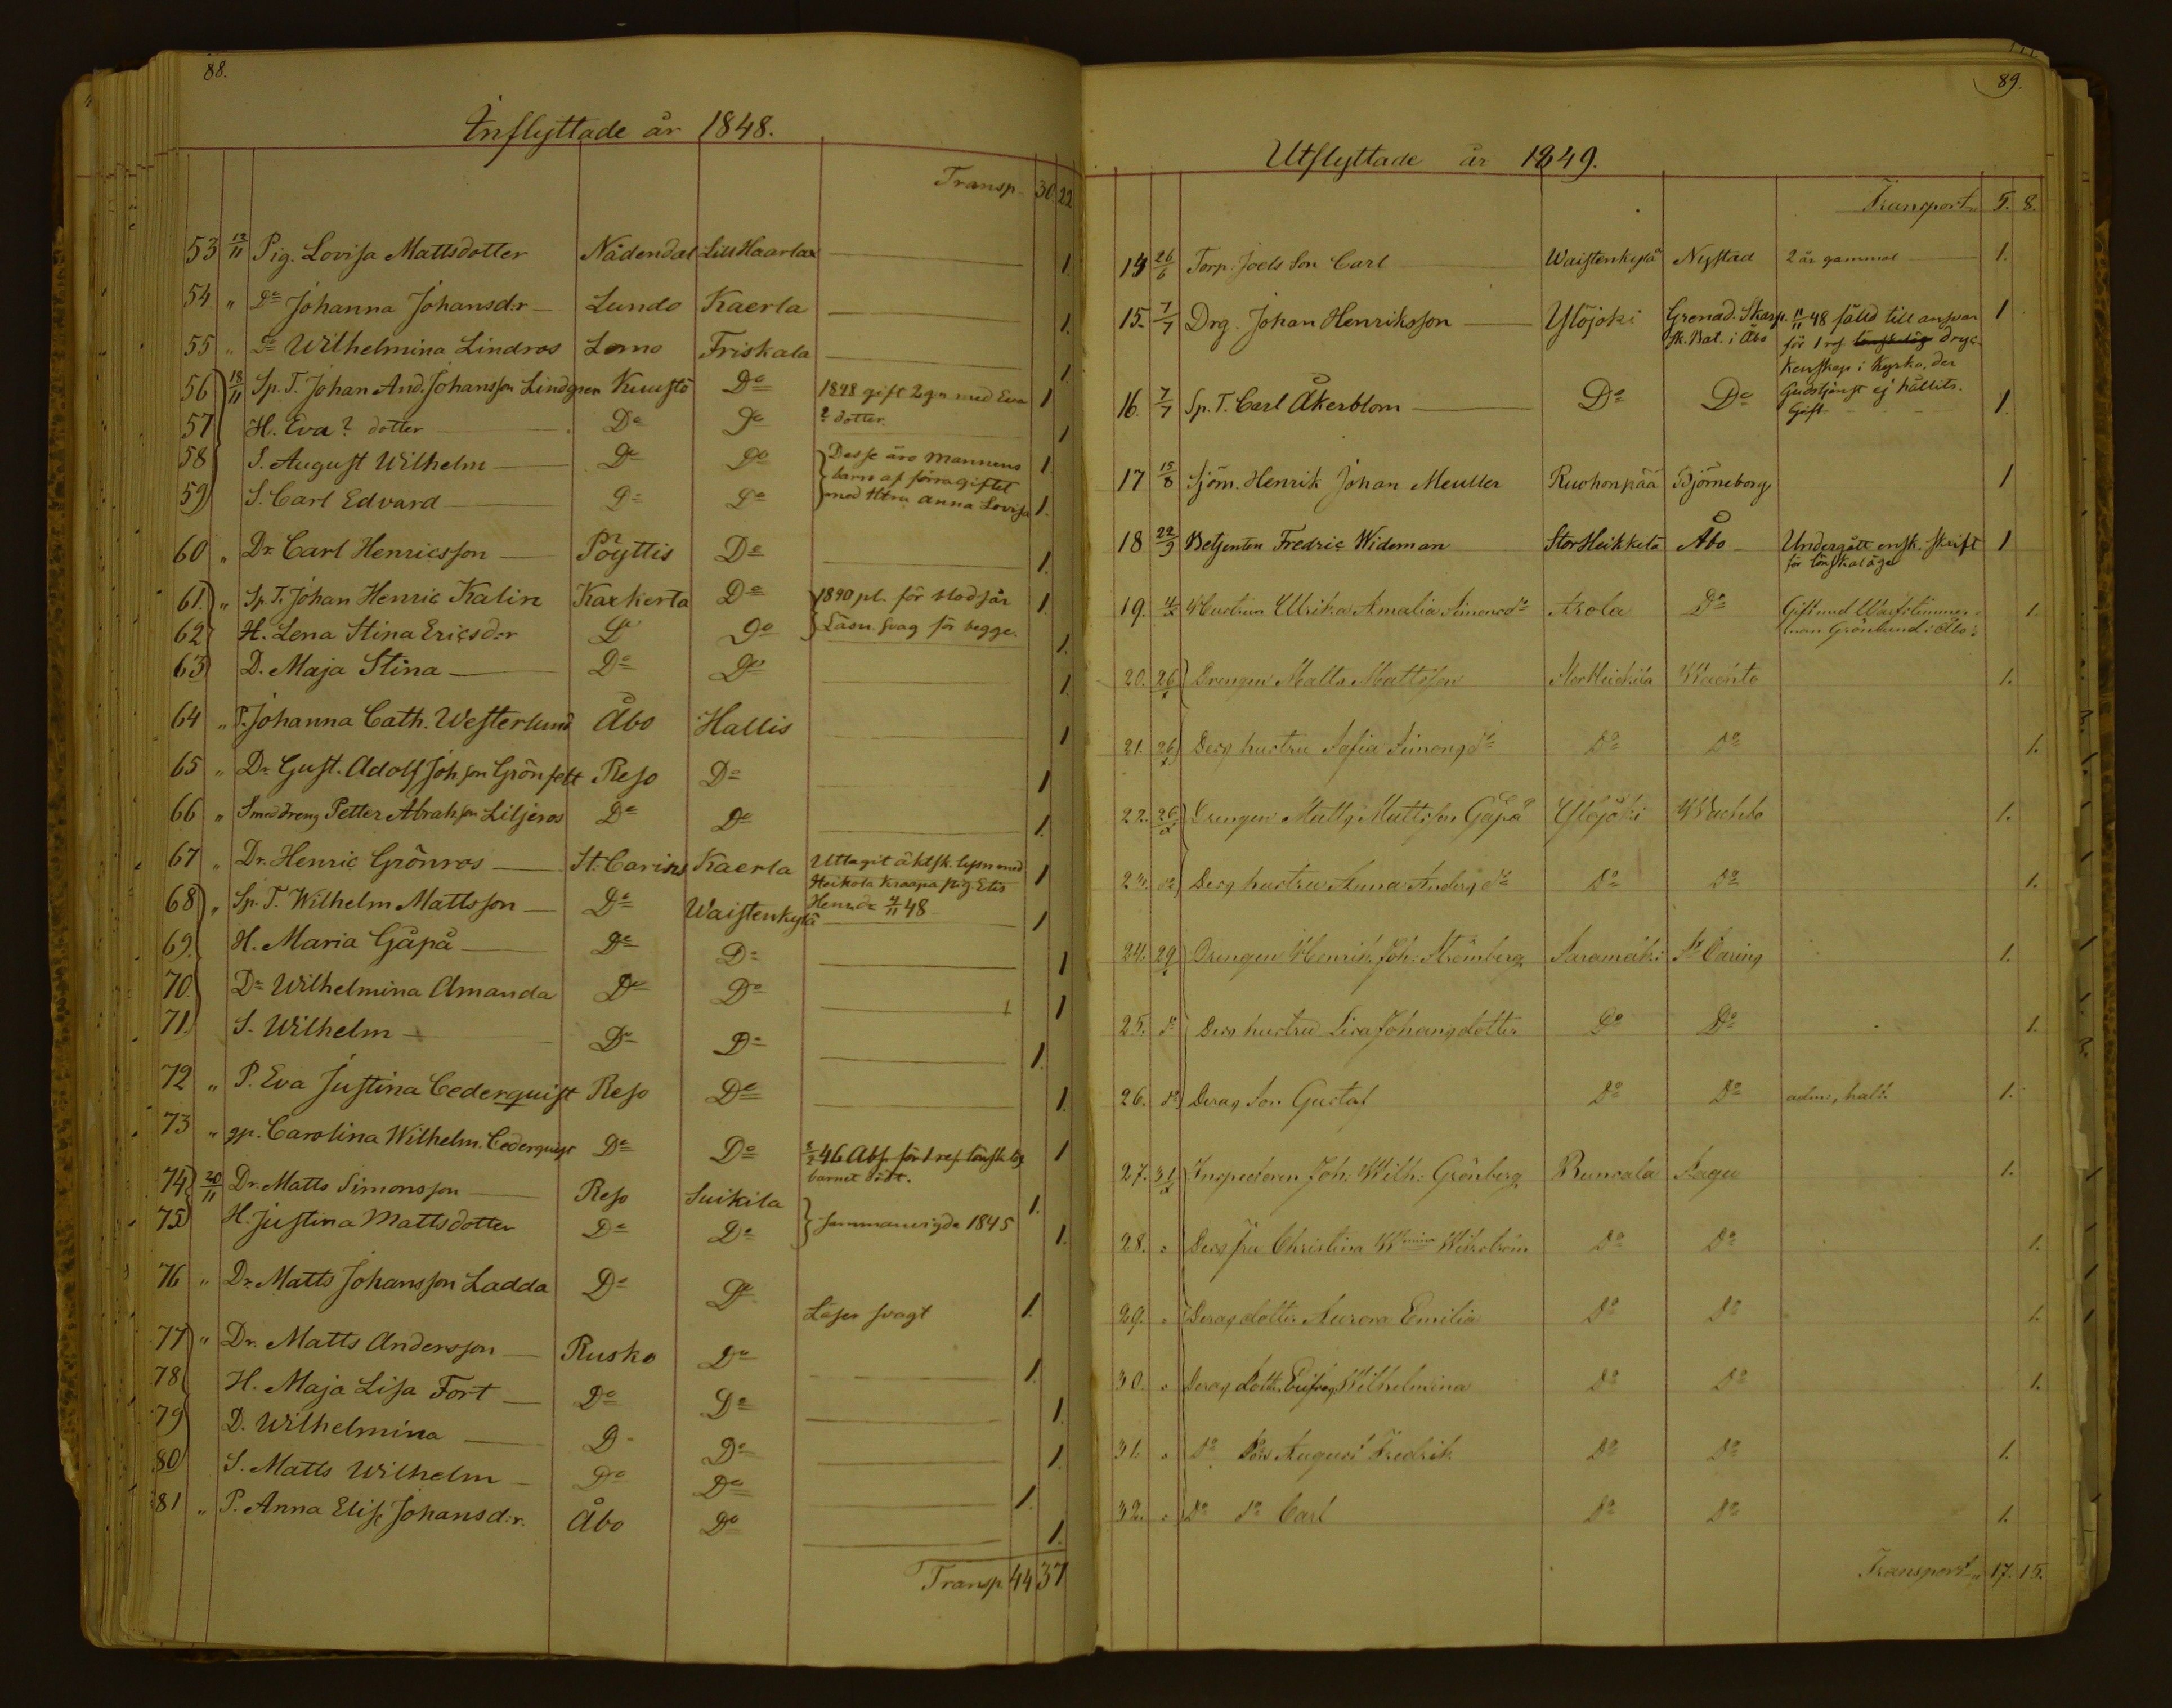 88.
Inflyttade år 1848.
Transp. 30. 22
53 12/11 Pig. Lovisa Mattsdotter Nådendal Lill Haarlax 1
54 " Do Johanna Johansd:r Lundo Kaerla 1.
55 " Do Wilhelmina Lindros Lemo Friskala 1
56 18/11 Sp. T. Johan And. Johansson Lindgren Kuustö Do 1848 gift 2 gn med Eva 1
57 H. Eva ? dotter Do Do ? dotter. 1
58 S. August Wilhelm Do Do Desse äro mannens 1
barn af förra giftet
59 S. Carl Edvard Do Do med Hstra Anna Lovisa 1.
60 " Dr. Carl Henricsson Pöyttis Do 1.
61. " Sp. T. Johan Henric Kalin Kaxkerta Do 1840 pl. för stöd år 1.
62 H. Lena Stina Ericsd:r Do Do Läsn. svag för begge. 1.
63 D. Maja Stina Do Do 1.
64 " P. Johanna Cath. Westerlund Åbo Hallis 1
65 " Dr. Gust. Adolf Joh:son Grönfelt Reso Do 1
66 " Smeddreng Petter Abrah:son Liljeros Do Do 1.
67 " Dr. Henric Grönros St. Carins Kaerla Uttagit äktsk. lysn med 1
Heikola Kraapa pig. Elis
68 " Sp. T. Wilhelm Mattsson Do Waistenkylä Henr.dr 4/11 48 1
69. H. Maria Gåpå Do Do 1
70. Dr Wilhelmina Amanda Do Do 1
71. S. Wilhelm Do Do 1.
72 " P. Eva Justina Cederquist Reso Do 1.
73 " qp. Carolina Wilhelm. Cederquist Do Do 46 Abs. för 1 res. lönsk.läg 1
barnet dödt.
74 20/11 Dr. Matts Simonsson Reso Suikila 1.
75 H. Justina Mattsdotter Do Do sammanvigda 1845 1.
76 " Dr. Matts Johansson Ladda Do Do Läser svagt 1.
77 " Dr. Matts Andersson Rusko Do 1.
78 H. Maja Lisa Fort Do Do 1.
79 D. Wilhelmina Do Do 1.
80 S. Matts Wilhelm Do Do 1.
81 " P. Anna Elis. Johansd:r. Åbo Do 1.
Transp. 44 37
89.
Utflyttade år 1849.
Transport 5. 8.
14 26/6 Torp. Joels Son Carl Waistenkylä Nystad 2 år gammal 1.
15. 7/7 Drg. Johan Henriksson Ylöjoki Grenad. Skarp. 11/11 48 fälld till ansvar 1
sk. Bat. i Åbo för 1 res. dryc-
kenskap i Kyrko, der
16. 7/7 Sp. T. Carl Åkerblom Do Do Gudstjenst ej hållits. 1.
Gift
17 15/8 Sjöm. Henrik Johan Meuller Ruohonpää Björneborg 1
18 22/9 Betjenten Fredric Wideman StorHeikkilä Åbo Undergått ensk. skrift 1
för lönskaläge
19. 4/x Hustrun Ulrika Amalia Simonsdr Arola Do Gift med Warfstimmer- 1.
man Grönlund i Åbo
20. 26/x Drengen Matts Mattsson StorHeikkilä Wachto 1.
21. 26/x Dess hustru Sofia Simonsdr Do Do 1.
22. 26/x Drengen Matts Mattsson Gåpå Ylöjoki Wachto 1.
23. do Dess hustru Anna Andersdr Do Do 1.
24. 29/x Drengen Henrik Joh: Strömberg Saramäki St Carins 1.
25. do Dess hustru Lisa Johansdotter Do Do 1.
26. do Deras Son Gustaf Do Do adm:, halt. 1.
27. 31/x Inspectoren Joh. Wilh: Grönberg Runsala Sagu 1.
28. " Dess fru Christina Wmina Do Do 1.
29. " Deras dotter Aurora Emilia Do Do 1.
30. " Deras dott. Wilhelmina Do Do 1.
31. " Do Son August Fredrik Do Do 1.
32. " Do do Carl Do Do 1.
Transport 17. 15.